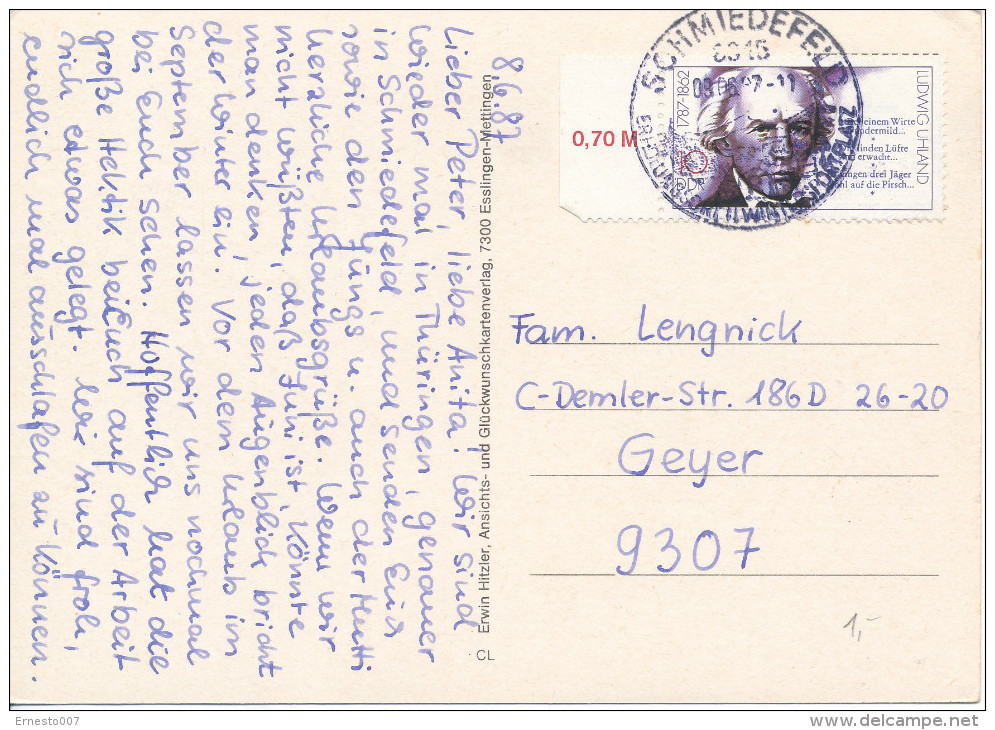 8.6.87
Lieber Peter, liebe Anita! Wir sind
wieder mal in Thüringen, genauer
in Schmiedefeld, und senden Euch
sowie den Jüngs u. auch der Mutti
herzliche Urlaubsgrüße. Wenn wir
nicht wüßten, daß Juni ist, könnte
man denken, jeden Augenblick bricht
der Winter ein. Vor dem Urlaub im
September lassen wir uns nochmal
bei Euch sehen. Hoffentlich hat die
große Hektik bei Euch auf der Arbeit
sich etwas gelegt. Wir sind froh,
endlich mal ausschlafen zu können.
CL Erwin Hitzler, Ansichts- und Glückwunschkartenverlag, 7300 Esslingen-Mettingen
SCHMIEDEFELD
0,70 M
1787-1862
DDR
LUDWIG UHLAND
einem Wirte
wundermild...
linden Lüfte
erwacht...
gingen drei Jäger
wohl auf die Pirsch...
Fam. Lengnick
C-Demler-Str. 186D 26-20
Geyer
9307
1,-
Ernesto007
delcampe.net